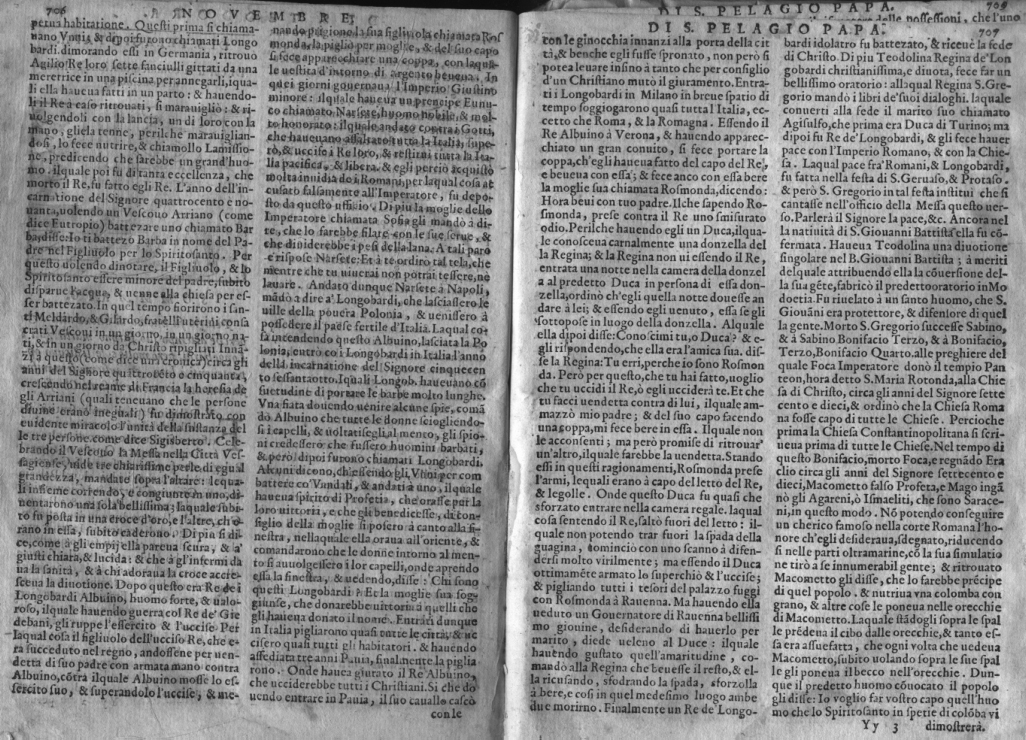 706
NOVEMBRE
petua habitatione. Questi prima si chiama-
uano Vinuli & dipoi furono chiamati Longo
bardi. dimorando essi in Germania, ritrouò
Agilio Re loro sette fanciulli gittati da una
meretrice in una piscina per annegarli, iqua-
li ella haueua fatti in un parto: & hauendo-
li il Re à caso ritrouati, si marauigliò: & ri-
uolgendoli con la lancia, un di loro con la
mano, gliela tenne, perilche marauiglian-
dosi, lo fece nutrire, & chiamollo Lamissio-
ne, predicendo che sarebbe un grand'huo-
mo. ilquale poi fu di tanta eccellenza, che
morto il Re, fu fatto egli Re. L'anno dell'in-
carnatione del Signore quattrocento e no-
uanta, uolendo un Vescouo Arriano (come
dice Eutropio) battezare uno chiamato Bar
ba disse: Io ti battezo Barba in nome del Pa-
dre nel Figliuolo per lo Spiritosanto. Per
questo uolendo dinotare, il Figliuolo, & lo
Spiritosanto essere minore del padre, subito
disparue l'acqua, & uenne alla chiesa per es-
ser battezato. In quel tempo fiorirono i san-
ti Meldardo, & Gilardo, fratelli uterini consa
crati Vescoui in un giorno, in un giorno na-
ti, & in un giorno da Christo ripigliati. Innã-
zi à questo (come dice una cronica) circa gli
anni del Signore quattrocẽto e cinquanta,
crescendo nel reame di Francia la heresia de
gli Arriani (quali teneuano che le persone
diuine erano ineguali) fu dimostrato con
euidente miracolo l'unità della sustanza del
le tre persone. come dice Sigisberto. Cele-
brando il Vescouo la Messa nella Città
uide tre chiarissime perle, di egual
grandezza, mandate sopra l'altare: lequa-
li insieme correndo, e congiunte in uno, di-
uentarono una sola bellissima; laquale subi-
to fu posta in una croce d'oro, e l'altre, ch'e
rano in essa, subito caderono. Di piu si di-
ce, come à gli empij ella pareua scura, & à'
giusti chiara, & lucida: & che à gl'infermi da
ua la sanità, & à chi adoraua la croce accre-
sceua la diuotione. Dopo questo era Re de i
Longobardi Albuino, huomo forte, & ualo-
roso, ilquale hauendo guerra col Re de' Gie
debani, gli ruppe l'essercito & l'uccise. Per
laqual cosa il figliuolo dell'ucciso Re, che e-
ra succeduto nel regno, andossene per uen-
detta di suo padre con armata mano contra
Albuino, cõtra il quale Albuino mosse lo es-
sercito suo, & superandolo l'uccise; & me-
nando prigione la sua figliuola chiamata Ros
monda, la pigliò per moglie, & del suo capo
si fece apparecchiare una coppa, con laqua-
le uestita d'intorno di argento beueua. In
quei giorni gouernaua l'Imperio Giustino
minore: ilquale haueua un prencipe Eunu-
co chiamato Narsete, huomo nobile, & mol-
to honorato: ilquale andato contra i Gotti,
che haueuano assaltato tutta la Italia, supe-
rò, & uccise i Re loro, & restituì tutta la Ita-
lia pacifica, & libera. & egli perciò acquistò
molta inuidia da i Romani, per laqual cosa ac
cusato falsamente all'Imperatore, fu depo-
sto da questo ufficio. Di piu la moglie dello
Imperatore chiamata Sofia gli mandò à di-
re, che lo farebbe filare con le sue serue, &
che diuiderebbe i pesi della lana. A tal paro
e rispose Narsete: Et à te ordirò tal tela, che
mentre che tu uiuerai non potrai tessere, ne
leuare. Andato dunque Narsete à Napoli,
mãdò à dire a' Longobardi, che lasciassero le
uille della pouera Polonia, & uenissero à
possedere il paese fertile d'Italia. Laqual co
sa intendendo questo Albuino, lasciata la Po
lonia, entrò co i Longobardi in Italia l'anno
della incarnatione del Signore cinquecen
to sessantotto. Iquali Longob. haueuano cõ
suetudine di portare le barbe molto lunghe.
Vna fiata douendo uenire alcune spie, comã
dò Albuino che tutte le donne sciogliendo-
si i capelli, & uoltatiseglial mento, gli spio-
ni credessero che fussero huomini barbati,
& però dipoi furono chiamati Longobardi.
Alcuni dicono, ch'essendo gli Vnni per com
battere co' Vandali, & andati à uno, ilquale
haueua spirito di Profetia, che orasse per la
loro uittoria, e che gli benedicesse, di con-
siglio della moglie si posero à canto alla fi-
nestra, nellaquale ella oraua all'oriente, &
comandarono che le donne intorno al men-
to si auuolgessero i lor capelli, onde aprendo
essa la finestra, & uedendo, disse: Chi sono
questi Longobardi? Et la moglie sua sog-
giunse, che donarebbe uittoria à quelli che
gli haueua donato il nome. Entrati dunque
in Italia pigliarono quasi tutte le città, & uc
cisero quasi tutti gli habitatori. & hauendo
assediata tre anni Pauia, finalmente la piglia
rono. Onde haueua giurato il Re Albuino,
che ucciderebbe tutti i Christiani. Si che do
uendo entrare in Pauia, il suo cauallo cascò
con le
DI S. PELAGIO PAPA.
709
delle possessioni, che l'uno
DI S. PELAGIO PAPA.
707
con le ginocchia innanzi alla porta della cit
tà, & benche egli fusse spronato, non però si
potea leuare insino à tanto che per consiglio
d'un Christiano mutò il giuramento. Entra-
ti i Longobardi in Milano in breue spatio di
tempo soggiogarono quasi tutta l'Italia, ec-
cetto che Roma, & la Romagna. Essendo il
Re Albuino à Verona, & hauendo apparec-
chiato un gran conuito, si fece portare la
coppa, ch'egli haueua fatto del capo del Re,
e beueua con essa; & fece anco con essa bere
la moglie sua chiamata Rosmonda, dicendo:
Hora beui con tuo padre. Ilche sapendo Ro-
smonda, prese contra il Re uno smisurato
odio. Perilche hauendo egli un Duca, ilqua-
le conosceua carnalmente una donzella del
la Regina; & la Regina non ui essendo il Re,
entrata una notte nella camera della donzel
a al predetto Duca in persona di essa don-
zella, ordinò ch'egli quella notte douesse an
dare à lei; & essendo egli uenuto, essa se gli
sottopose in luogo della donzella. Alquale
ella dipoi disse: Conoscimi tu, o Duca? & e-
gli rispondendo, che ella era l'amica sua. dis-
se la Regina: Tu erri, perche io sono Rosmon
da. Però per questo, che tu hai fatto, uoglio
che tu uccidi il Re, ò egli ucciderà te. Et che
tu facci uendetta contra di lui, ilquale am-
mazzò mio padre; & del suo capo facendo
una coppa, mi fece bere in essa. Ilquale non
le acconsentì; ma però promise di ritrouar'
un'altro, ilquale farebbe la uendetta. Stando
essi in questi ragionamenti, Rosmonda prese
l'armi, lequali erano à capo del letto del Re,
& legolle. Onde questo Duca fu quasi che
sforzato entrare nella camera regale. laqual
cosa sentendo il Re, saltò fuori del letto: il-
quale non potendo trar fuori la spada della
guagina, cominciò con uno scanno à difen-
dersi molto virilmente; ma essendo il Duca
ottimamẽte armato lo superchiò & l'uccise;
& pigliando tutti i tesori del palazzo fuggì
con Rosmonda à Rauenna. Ma hauendo ella
ueduto un Gouernatore di Rauenna bellissi
mo giouine, desiderando di hauerlo per
marito, diede ueleno al Duce: ilquale
hauendo gustato quell'amaritudine, co-
mandò alla Regina che beuesse il resto, & el-
la ricusando, sfodrando la spada, sforzolla
à bere, e così in quel medesimo luogo ambe
due morirno. Finalmente un Re de' Longo-
bardi idolatro fu battezato, & riceuè la fede
di Christo. Di piu Teodolina Regina de' Lon
gobardi christianissima, e diuota, fece far un
bellissimo oratorio: allaqual Regina S. Gre-
gorio mandò i libri de' suoi dialoghi. laquale
conuertì alla fede il marito suo chiamato
Agisulfo, che prima era Duca di Turino; ma
dipoi fu Re de' Longobardi, & gli fece hauer
pace con l'Imperio Romano, & con la Chie-
sa. Laqual pace fra' Romani, & Longobardi,
fu fatta nella festa di S. Geruaso, & Protaso.
& però S. Gregorio in tal festa institui che si
cantasse nell'officio della Messa questo uer-
so. Parlerà il Signore la pace, &c. Ancora nel
la natiuità di S. Giouanni Battista ella fu cõ-
fermata. Haueua Teodolina una diuotione
singolare nel B. Giouanni Battista; à meriti
del quale attribuendo ella la cõuersione del-
la sua gẽte, fabricò il predetto oratorio in Mo
doetia. Fu riuelato à un santo huomo, che S.
Giouãni era protettore, & difensore di quel
la gente. Morto S. Gregorio successe Sabino,
& à Sabino Bonifacio Terzo, & à Bonifacio,
Terzo, Bonifacio Quarto. alle preghiere del
quale Foca Imperatore donò il tempio Pan
teon, hora detto S. Maria Rotonda, alla Chie
sa di Christo, circa gli anni del Signore sette
cento e dieci, & ordinò che la Chiesa Roma
na fosse capo di tutte le Chiese. Percioche
prima la Chiesa Constantinopolitana si scri-
ueua prima di tutte le Chiese. Nel tempo di
questo Bonifacio, morto Foca, e regnãdo Era
clio circa gli anni del Signore settecento e
dieci, Macometto falso Profeta, e Mago ingã
nò gli Agareni, ò Ismaeliti, che sono Sarace-
ni, in questo modo. Nõ potẽdo conseguire
un cherico famoso nella corte Romana l'ho-
nore ch'egli desideraua, sdegnato, riducendo
si nelle parti oltramarine, cõ la sua simulatio
ne tirò a se innumerabil gente; & ritrouato
Macometto gli disse, che lo farebbe prẽcipe
di quel popolo. & nutriua una colomba con
grano, & altre cose le poneua nelle orecchie
di Macometto. Laquale stãdogli sopra le spal
le prẽdeua il cibo dalle orecchie, & tanto es-
sa era assuefatta, che ogni volta che uedeua
Macometto, subito uolando sopra le sue spal
le gli poneua il becco nell'orecchie. Dun-
que il predetto huomo cõuocato il popolo
gli disse: Io voglio far vostro capo quell'huo
mo che lo Spiritosanto in spetie di colõba vi
Yy 3 dimostrerà.